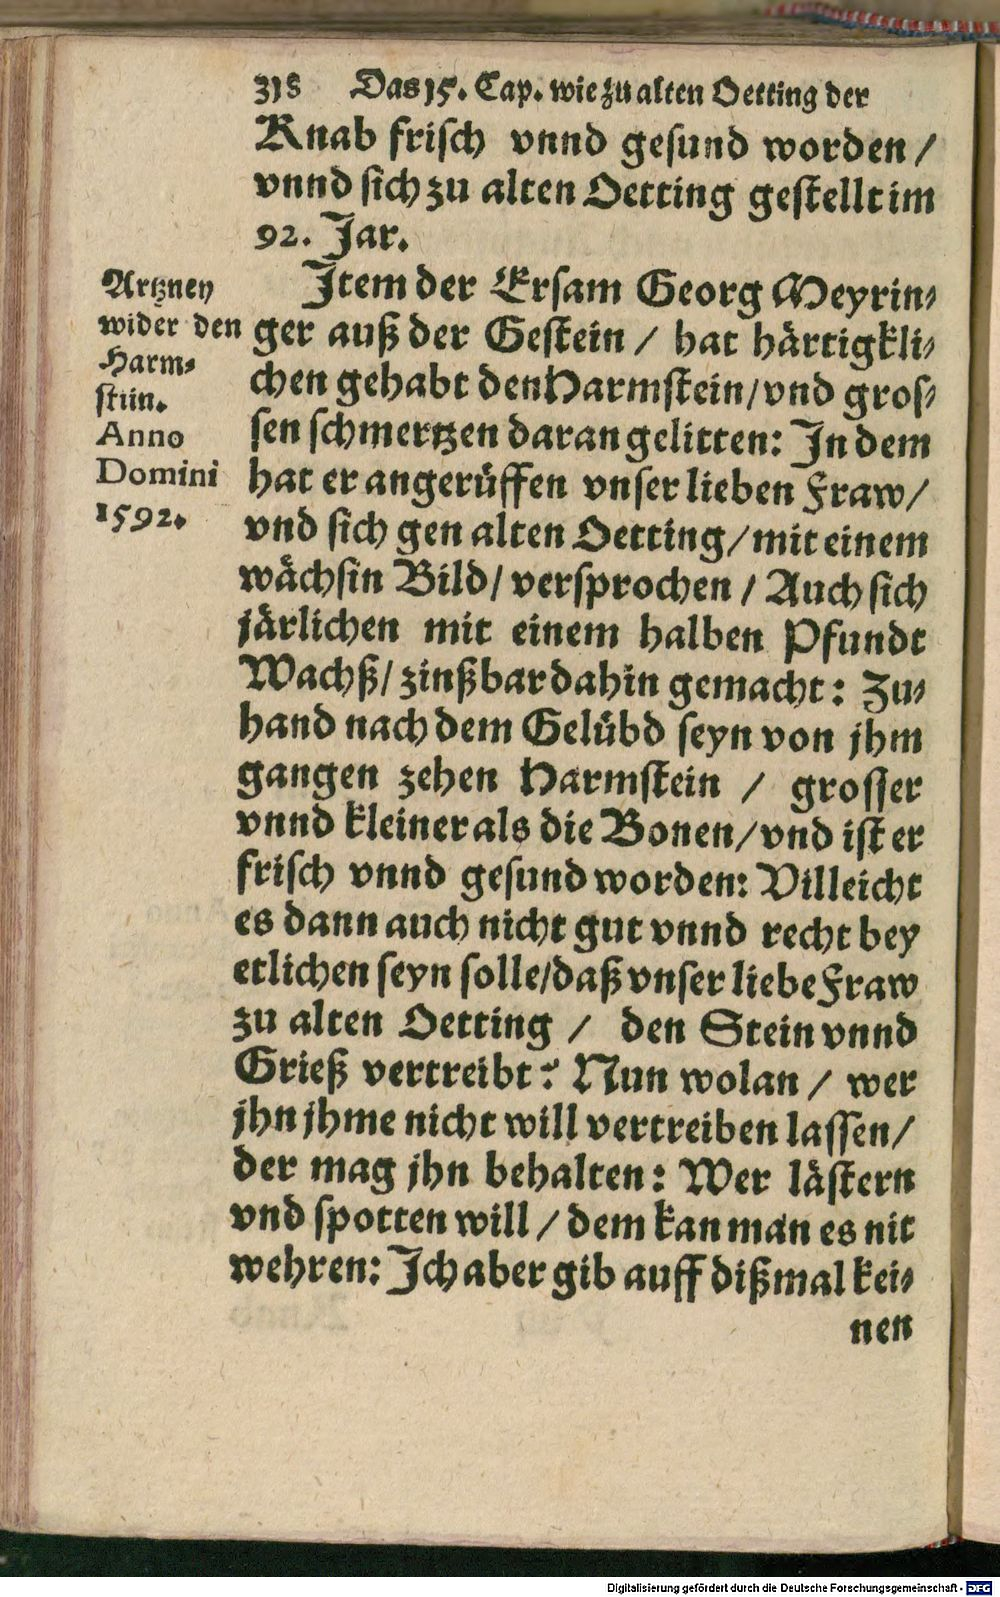 318 Das 15. Cap. wie zu alten Oetting der
Knab frisch vnnd gesund worden /
vnnd sich zu alten Oetting gestellt im
92. Jar.
Artzney
wider den
Harm⸗
stiin.
Anno
Domini
1592.
Jtem der Ersam Georg Meyrin⸗
ger auß der Gestein / hat härtigkli⸗
chen gehabt den Harmstein / vnd gros⸗
sen schmertzen daran gelitten: Jn dem
hat er angerüffen vnser lieben Fraw /
vnd sich gen alten Oetting / mit einem
wächsin Bild / versprochen / Auch sich
järlichen mit einem halben Pfundt
Wachß / zinßbar dahin gemacht: Zu⸗
hand nach dem Gelübd seyn von jhm
gangen zehen Harmstein / grosser
vnnd kleiner als die Bonen / vnd ist er
frisch vnnd gesund worden: Villeicht
es dann auch nicht gut vnnd recht bey
etlichen seyn solle / daß vnser liebe Fraw
zu alten Oetting / den Stein vnnd
Grieß vertreibt? Nun wolan / wer
jhn jhme nicht will vertreiben lassen /
der mag jhn behalten: Wer lästern
vnd spotten will / dem kan man es nit
wehren: Jch aber gib auff dißmal kei⸗
nen
Digitalisierung gefördert durch die Deutsche Forschungsgemeinschaft - DFG